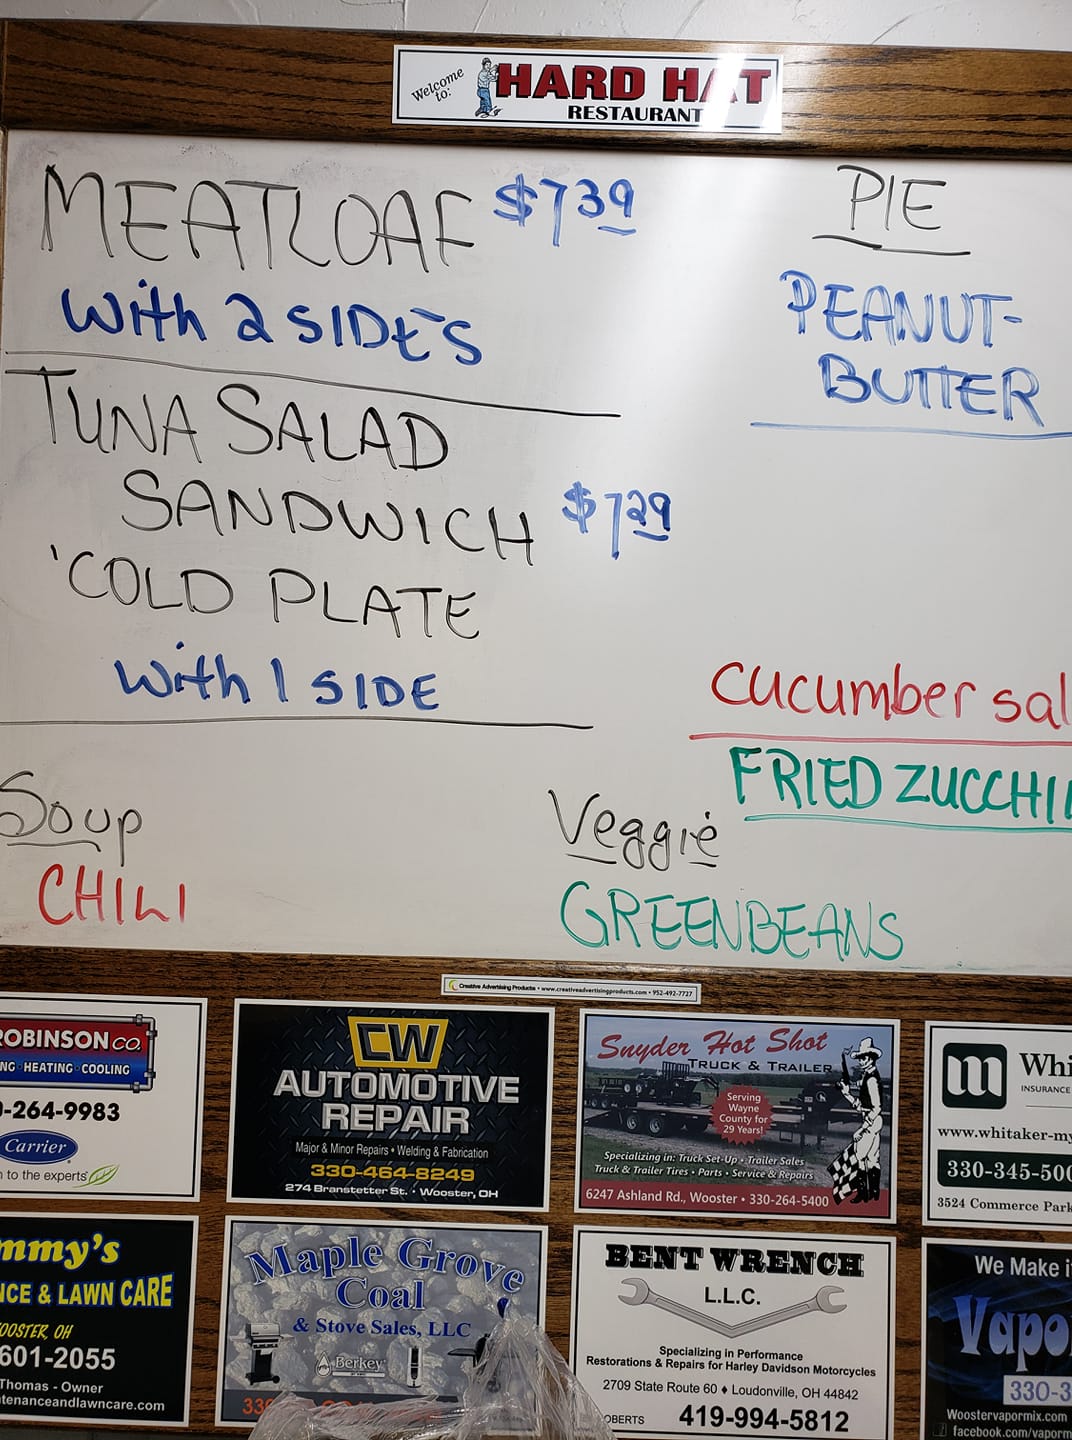 Welcome to:
HARD HAT
RESTAURANT
MEATLOAF $7.39
with 2 SIDES
TUNA SALAD
SANDWICH $7.29
'COLD PLATE
with 1 SIDE
Soup
CHILI
PIE
PEANUT-
BUTTER
cucumber sal
FRIED ZUCCHI
Veggie
GREENBEANS
Creative Advertising Products • www.creativeadvertisingproducts.com • 952-492-7727
ROBINSON CO.
NG · HEATING · COOLING
0-264-9983
Carrier
n to the experts
CW
AUTOMOTIVE
REPAIR
Major & Minor Repairs • Welding & Fabrication
330-464-8249
274 Branstetter St. • Wooster, OH
Snyder Hot Shot
TRUCK & TRAILER
Serving
Wayne
County for
29 Years!
Specializing in: Truck Set-Up • Trailer Sales
Truck & Trailer Tires • Parts • Service & Repairs
6247 Ashland Rd., Wooster • 330-264-5400
m
Whi
INSURANCE
www.whitaker-my
330-345-500
3524 Commerce Park
mmy's
NCE & LAWN CARE
OOSTER, OH
601-2055
Thomas - Owner
tenanceandlawncare.com
Maple Grove
Coal
& Stove Sales, LLC
Berkey
330
BENT WRENCH
L.L.C.
Specializing in Performance
Restorations & Repairs for Harley Davidson Motorcycles
2709 State Route 60 ♦ Loudonville, OH 44842
OBERTS 419-994-5812
We Make i
Vapo
330-3
Woostervapormix.com
facebook.com/vaporm